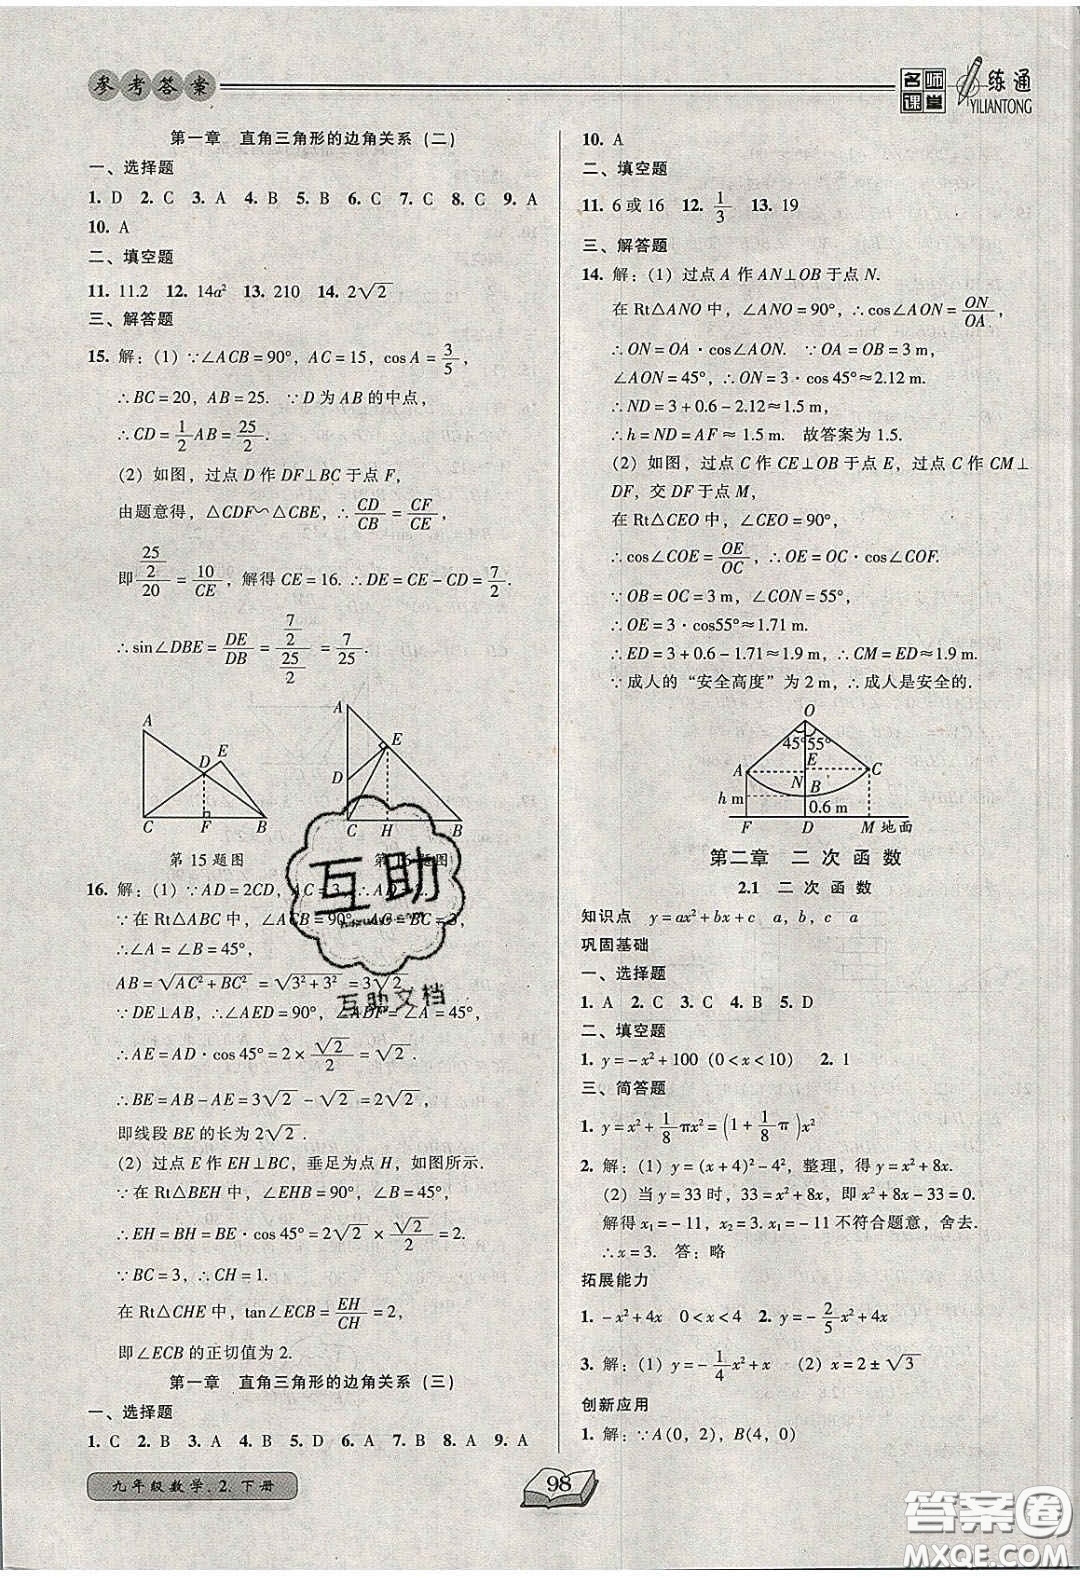 参考答案
名师课堂 一练通
YILIANTONG
第一章 直角三角形的边角关系(二)
一、选择题
1. D 2. C 3. A 4. B 5. B 6. C 7. C 8. C 9. A
10. A
二、填空题
11. 11.2 12. 14a² 13. 210 14. 2√2
三、解答题
15. 解:(1) ∵∠ACB=90°, AC=15, cos A=3/5,
∴BC=20, AB=25. ∵D为AB的中点,
∴CD=1/2 AB=25/2.
(2) 如图,过点D作DF⊥BC于点F,
由题意得,△CDF∽△CBE, ∴CD/CB=CF/CE,
即 (25/2)/20=10/CE, 解得CE=16. ∴DE=CE-CD=7/2.
∴sin∠DBE=DE/DB=(7/2)/(25/2)=7/25.
A D E C F B
第15题图
A E D C H B
第16题图
16. 解:(1) ∵AD=2CD, AC=3,
∵在Rt△ABC中, ∠ACB=90°, AC=BC=3,
∴∠A=∠B=45°,
AB=√(AC²+BC²)=√(3²+3²)=3√2
∵DE⊥AB, ∴∠AED=90°, ∠ADF=∠A=45°,
∴AE=AD·cos 45°=2×√2/2=√2.
∴BE=AB-AE=3√2-√2=2√2.
即线段BE的长为2√2.
(2) 过点E作EH⊥BC, 垂足为点H, 如图所示.
∵在Rt△BEH中, ∠EHB=90°, ∠B=45°,
∴EH=BH=BE·cos45°=2√2×√2/2=2.
∵BC=3, ∴CH=1.
在Rt△CHE中, tan∠ECB=EH/CH=2,
即∠ECB的正切值为2.
第一章 直角三角形的边角关系(三)
一、选择题
1. C 2. B 3. A 4. C 5. A 6. C 7. B 8. A 9. A
10. A
二、填空题
11. 6或16 12. 1/3 13. 19
三、解答题
14. 解:(1) 过点A作AN⊥OB于点N.
在Rt△ANO中, ∠ANO=90°, ∴cos∠AON=ON/OA,
∴ON=OA·cos∠AON. ∵OA=OB=3 m,
∠AON=45°, ∴ON=3·cos 45°≈2.12 m.
∴ND=3+0.6-2.12≈1.5 m.
∴h=ND=AF≈1.5 m. 故答案为1.5.
(2) 如图,过点C作CE⊥OB于点E,过点C作CM⊥
DF, 交DF于点M,
在Rt△CEO中, ∠CEO=90°,
∴cos∠COE=OE/OC, ∴OE=OC·cos∠COF.
∵OB=OC=3 m, ∠CON=55°,
∴OE=3·cos55°≈1.71 m.
∴ED=3+0.6-1.71≈1.9 m, ∴CM=ED≈1.9 m.
∵成人的“安全高度”为2 m, ∴成人是安全的.
O
45° 55°
A E C
N B
h m 0.6 m
F D M 地面
第二章 二次函数
2.1 二次函数
知识点 y=ax²+bx+c a, b, c a
巩固基础
一、选择题
1. A 2. C 3. C 4. B 5. D
二、填空题
1. y=-x²+100 (0<x<10) 2. 1
三、简答题
1. y=x²+1/8 πx²=(1+1/8 π)x²
2. 解:(1) y=(x+4)²-4², 整理, 得y=x²+8x.
(2) 当y=33时, 33=x²+8x, 即x²+8x-33=0.
解得x₁=-11, x₂=3. x₁=-11不符合题意, 舍去.
∴x=3. 答:略
拓展能力
1. -x²+4x 0<x<4 2. y=-2/5 x²+4x
3. 解:(1) y=-1/4 x²+x (2) x=2±√3
创新应用
1. 解:∵A(0, 2), B(4, 0)
九年级数学.2.下册
98
互助
互助文档
答案圈
MXQE.COM